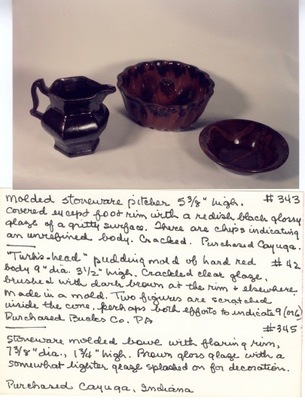 Molded stoneware pitcher 5 3/8" high. #343
Covered except foot rim with a redish black glossy
glaze of a gritty surface. There are chips indicating
an unrefined body. Cracked. Purchased Cayuga.
"Turk's-head" pudding mold of hard red #42
body 9" dia. 3 1/2" high. Crackled clear glaze,
brushed with dark brown at the rim & elsewhere
Made in a mold. Two figures are scratched
inside the cone, perhaps both efforts to indicate 9 (or 6)
Purchased Bucks Co. PA
#345
Stoneware molded bowl with flaring rim,
7 7/8" dia., 1 3/4" high. Brown gloss glaze with a
somewhat lighter glaze splashed on for decoration.
Purchased Cayuga, Indiana